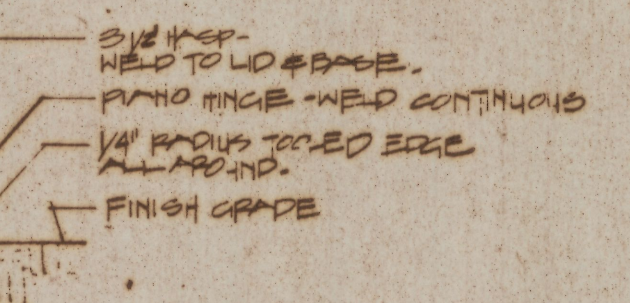 3 1/2" HASP-
WELD TO LID & BASE.
PIANO HINGE - WELD CONTINUOUS
1/4" RADIUS TOOLED EDGE
ALL AROUND.
FINISH GRADE